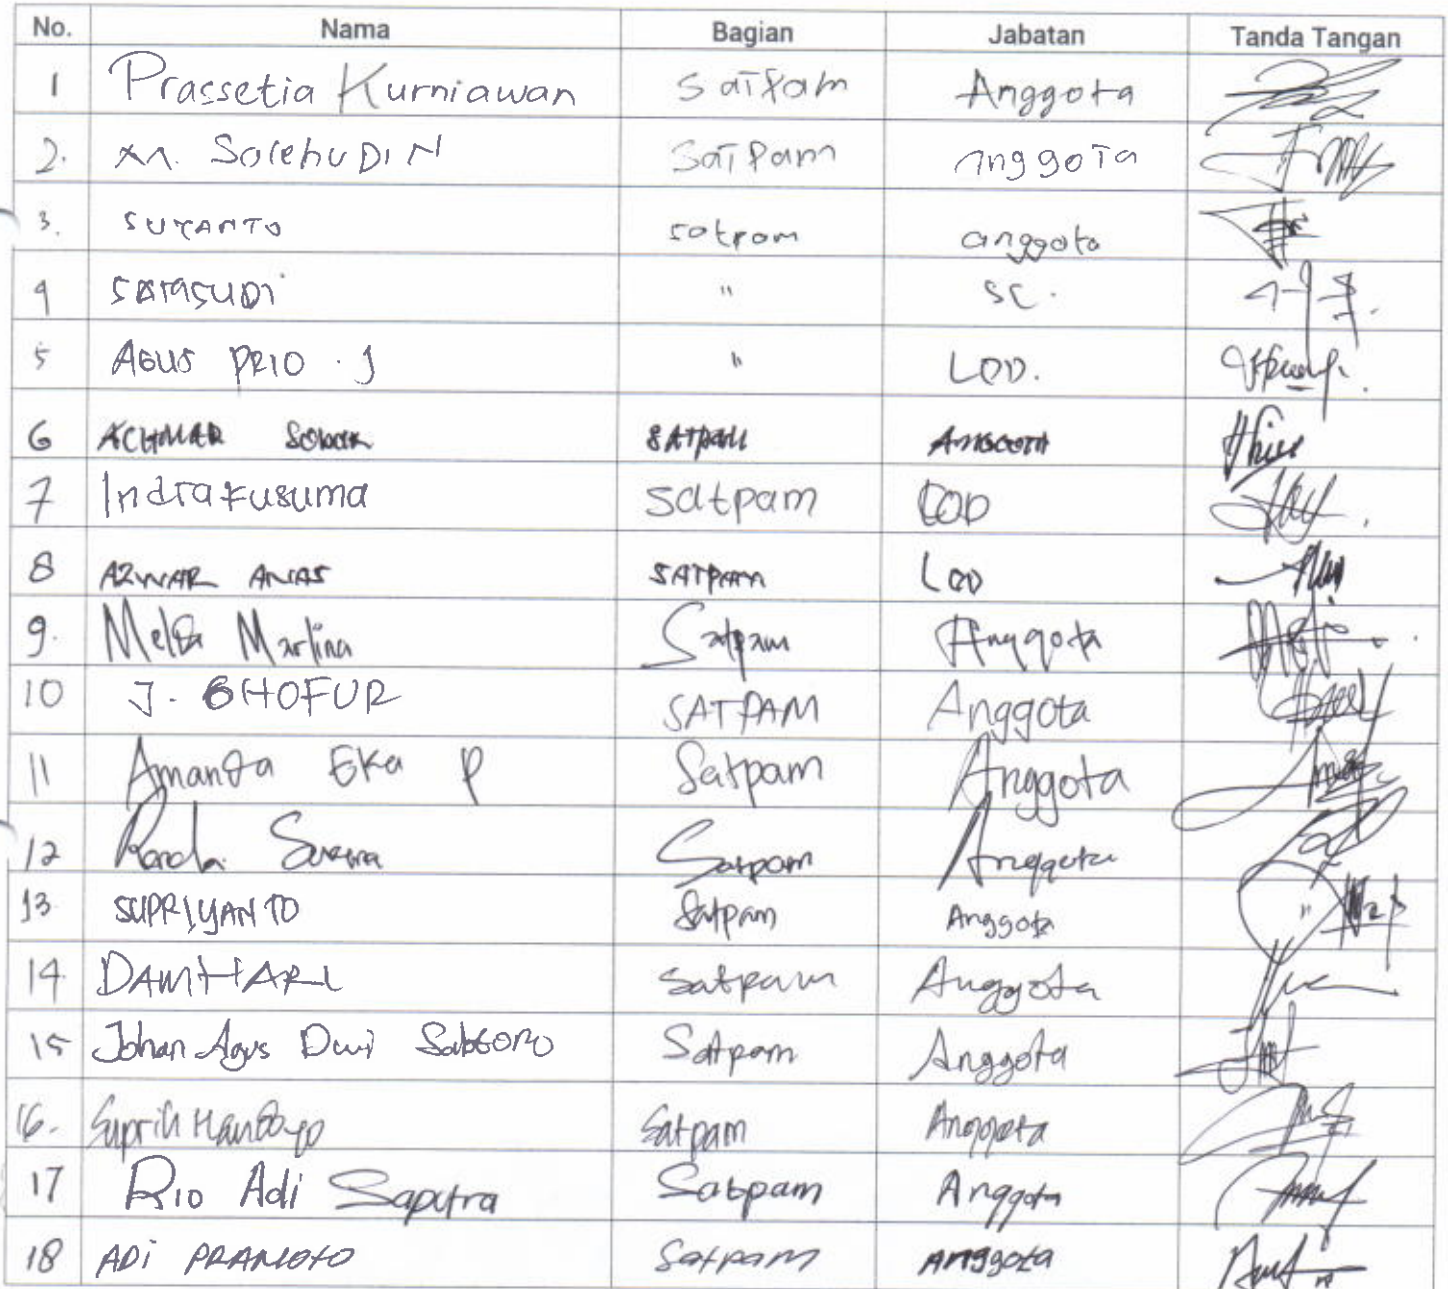 No. Nama Bagian Jabatan Tanda Tangan
1 Prassetia Kurniawan Satpam Anggota
2. M. SolehuDIN Satpam Anggota
3. SUYANTO satpam anggota
4 " SC.
5 AGUS PRIO . J " LOD.
6 ACHMAD SATPAM ANGGOTA
7 Indra Kusuma Satpam LOD
8 AZWAR ANAS SATPAM LOD
9. Marlina Satpam Anggota
10 J. GHOFUR SATPAM Anggota
11 Amanda Eka P Satpam Anggota
12 Satpam Anggota
13 SUPRIYANTO Satpam Anggota
14. DAMHARI Satpam Anggota
15 Johan Agus Dwi Satpam Anggota
16. Satpam Anggota
17 Rio Adi Saputra Satpam Anggota
18 ADI PRANOTO Satpam Anggota